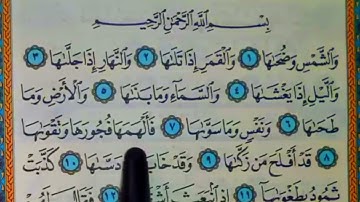 بِسْمِ ٱللَّهِ ٱلرَّحْمَٰنِ ٱلرَّحِيمِ
وَٱلشَّمْسِ وَضُحَىٰهَا ١ وَٱلْقَمَرِ إِذَا تَلَىٰهَا ٢ وَٱلنَّهَارِ إِذَا جَلَّىٰهَا ٣
وَٱلَّيْلِ إِذَا يَغْشَىٰهَا ٤ وَٱلسَّمَآءِ وَمَا بَنَىٰهَا ٥ وَٱلْأَرْضِ وَمَا
طَحَىٰهَا ٦ وَنَفْسٍ وَمَا سَوَّىٰهَا ٧ فَأَلْهَمَهَا فُجُورَهَا وَتَقْوَىٰهَا
٨ قَدْ أَفْلَحَ مَن زَكَّىٰهَا ٩ وَقَدْ خَابَ دَسَّىٰهَا ١٠ كَذَّبَتْ
ثَمُودُ بِطَغْوَىٰهَآ ١١ إِذِ ٱنۢبَعَثَ ١٢ فَقَالَ لَهُمْ